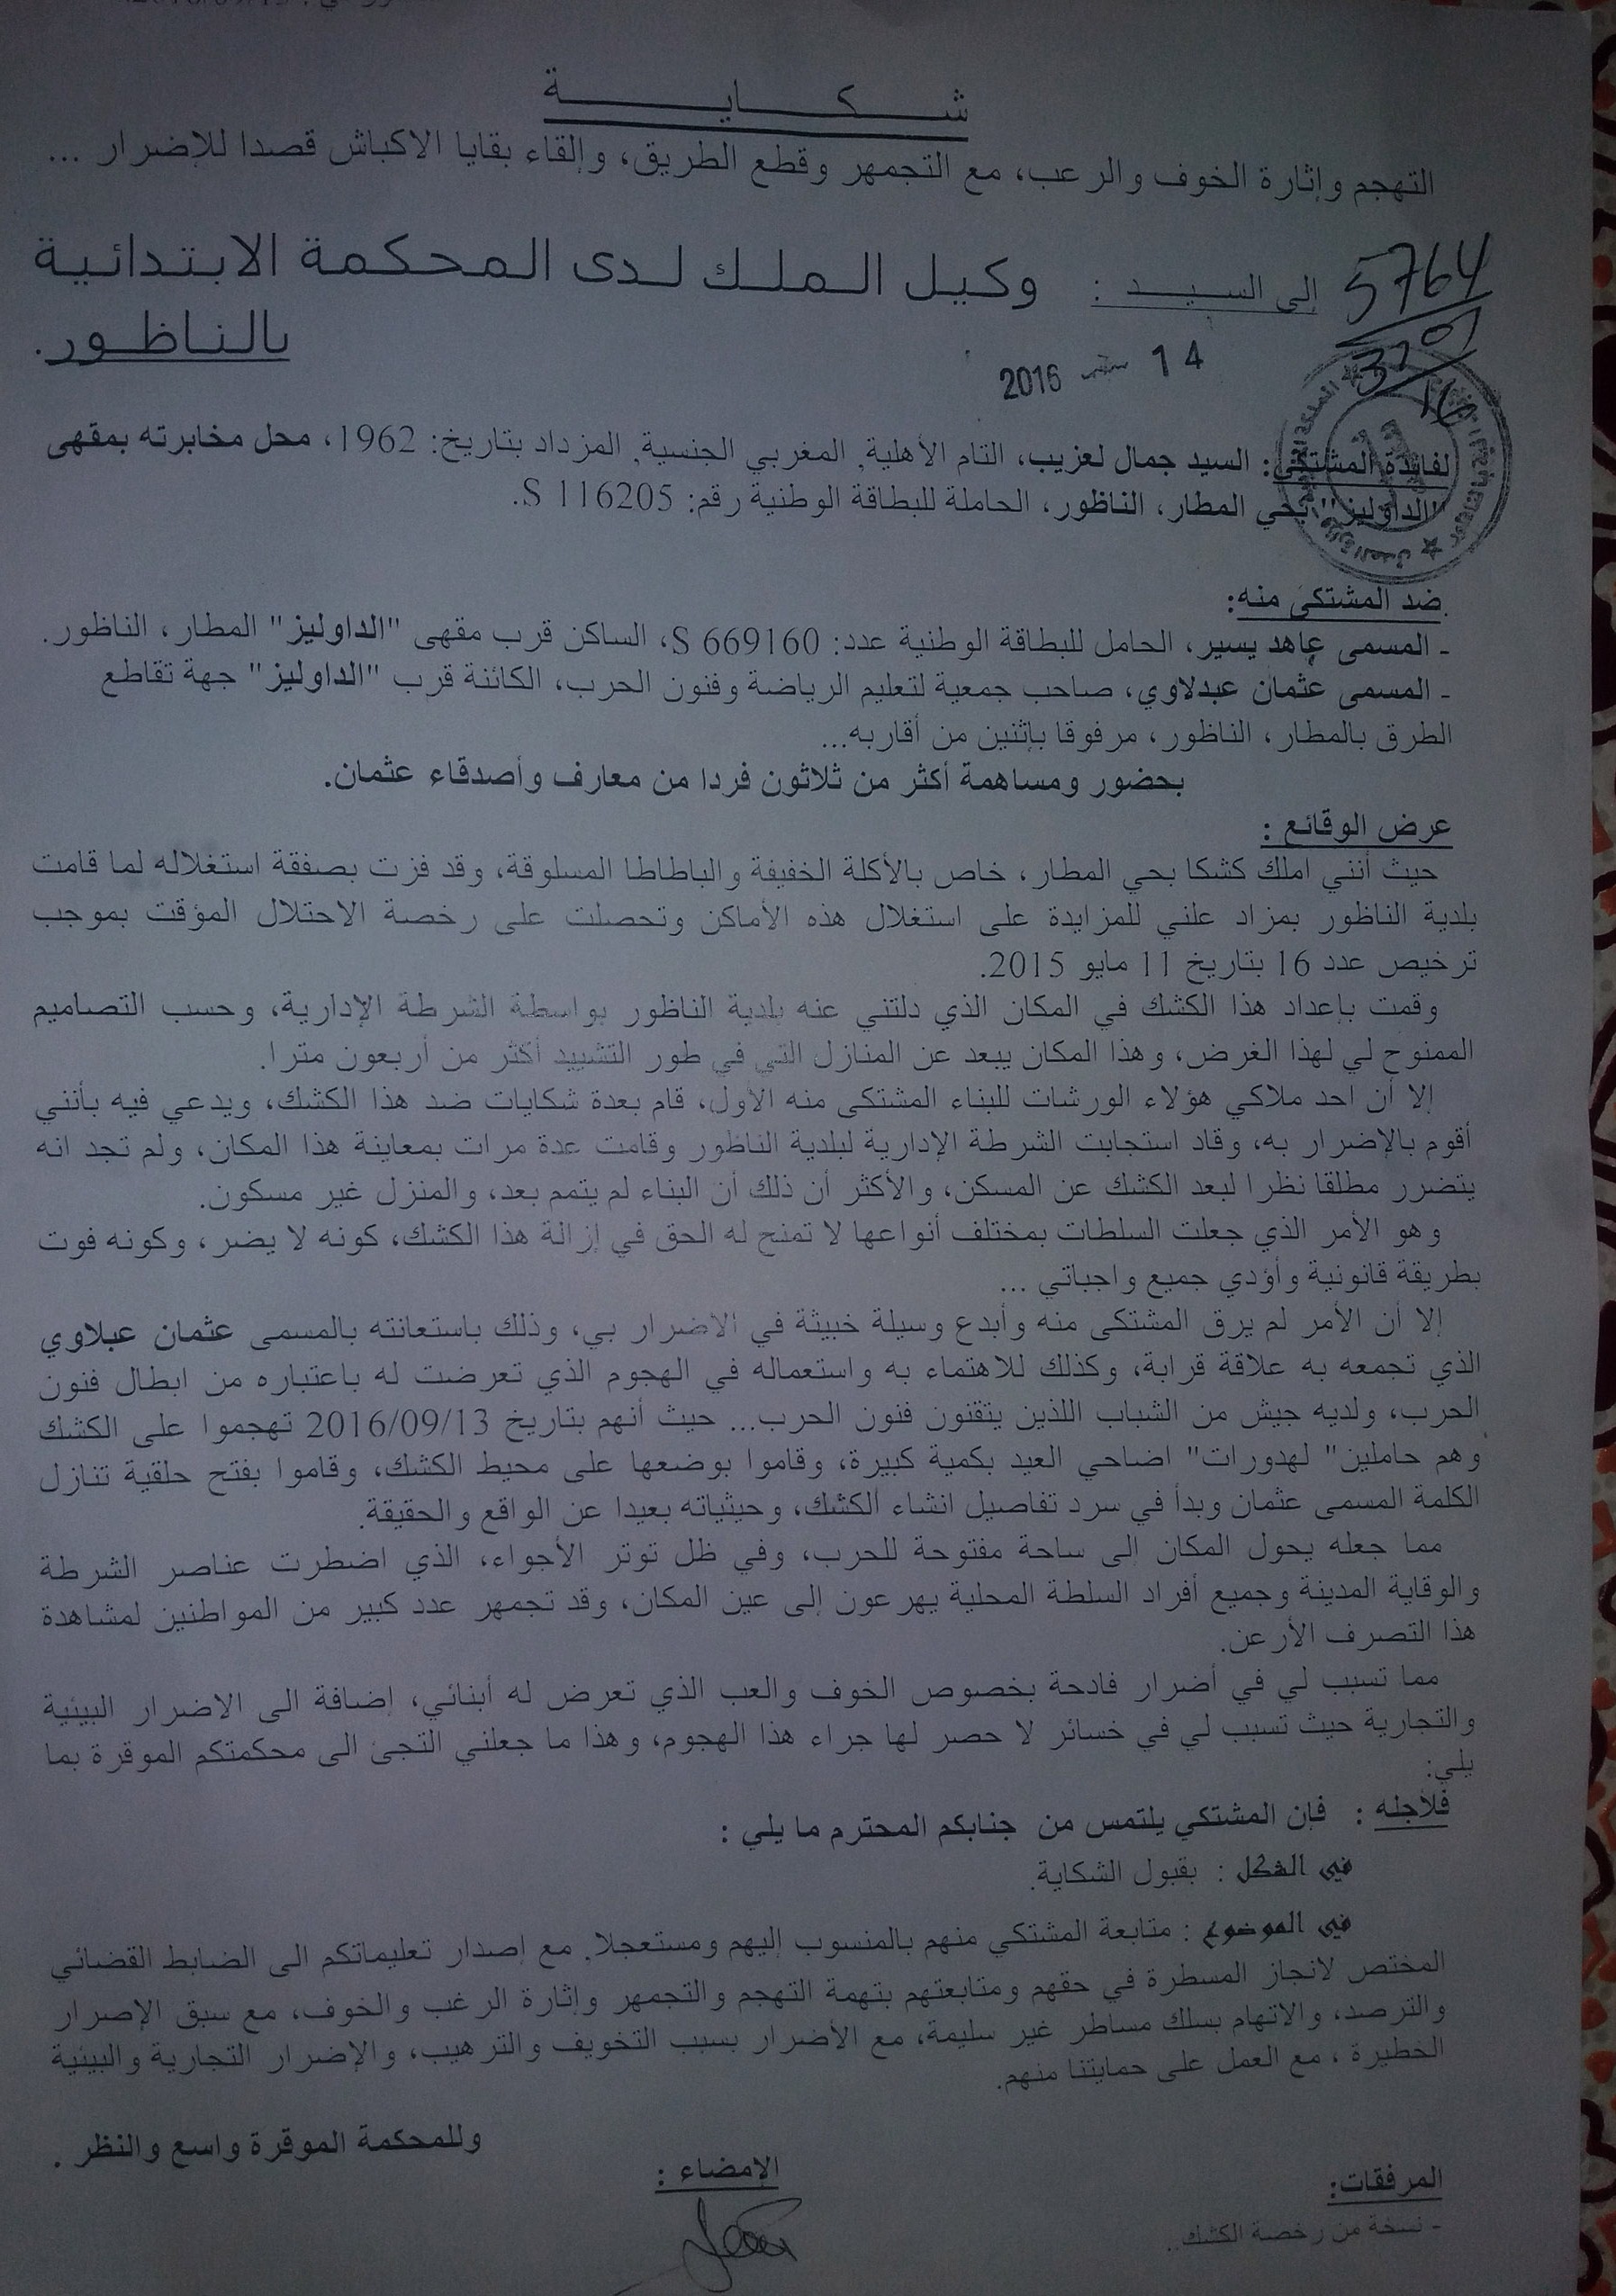 شكاية
التهجم وإثارة الخوف والرعب، مع التجمهر وقطع الطريق، وإلقاء بقايا الاكباش قصدا للإضرار ...
5764
إلى السيد : وكيل الملك لدى المحكمة الابتدائية
بالناظور.
3201/16
14 2016
لفائدة المشتكي: السيد جمال لعزيب، التام الأهلية, المغربي الجنسية, المزداد بتاريخ: 1962، محل مخابرته بمقهى
"الداوليز" بحي المطار، الناظور، الحاملة للبطاقة الوطنية رقم: S 116205.
ضد المشتكى منه:
- المسمى عاهد يسير، الحامل للبطاقة الوطنية عدد: S 669160، الساكن قرب مقهى "الداوليز" المطار، الناظور.
- المسمى عثمان عبدلاوي، صاحب جمعية لتعليم الرياضة وفنون الحرب، الكائنة قرب "الداوليز" جهة تقاطع
الطرق بالمطار، الناظور، مرفوقا بإثنين من أقاربه...
بحضور ومساهمة أكثر من ثلاثون فردا من معارف وأصدقاء عثمان.
عرض الوقائع :
حيث أنني املك كشكا بحي المطار، خاص بالأكلة الخفيفة والباطاطا المسلوقة، وقد فزت بصفقة استغلاله لما قامت
بلدية الناظور بمزاد علني للمزايدة على استغلال هذه الأماكن وتحصلت على رخصة الاحتلال المؤقت بموجب
ترخيص عدد 16 بتاريخ 11 مايو 2015.
وقمت بإعداد هذا الكشك في المكان الذي دلتني عنه بلدية الناظور بواسطة الشرطة الإدارية، وحسب التصاميم
الممنوح لي لهذا الغرض، وهذا المكان يبعد عن المنازل التي في طور التشييد أكثر من أربعون مترا.
إلا أن احد ملاكي هؤلاء الورشات للبناء المشتكى منه الأول، قام بعدة شكايات ضد هذا الكشك، ويدعي فيه بأنني
أقوم بالإضرار به، وقاد استجابت الشرطة الإدارية لبلدية الناظور وقامت عدة مرات بمعاينة هذا المكان، ولم تجد انه
يتضرر مطلقا نظرا لبعد الكشك عن المسكن، والأكثر أن ذلك أن البناء لم يتمم بعد، والمنزل غير مسكون.
وهو الأمر الذي جعلت السلطات بمختلف أنواعها لا تمنح له الحق في إزالة هذا الكشك، كونه لا يضر، وكونه فوت
بطريقة قانونية وأؤدي جميع واجباتي ...
إلا أن الأمر لم يرق المشتكى منه وأبدع وسيلة خبيثة في الاضرار بي، وذلك باستعانته بالمسمى عثمان عبلاوي
الذي تجمعه به علاقة قرابة، وكذلك للاهتماء به واستعماله في الهجوم الذي تعرضت له باعتباره من ابطال فنون
الحرب، ولديه جيش من الشباب اللذين يتقنون فنون الحرب... حيث أنهم بتاريخ 2016/09/13 تهجموا على الكشك
وهم حاملين" لهدورات" اضاحي العيد بكمية كبيرة، وقاموا بوضعها على محيط الكشك، وقاموا بفتح حلقية تنازل
الكلمة المسمى عثمان وبدأ في سرد تفاصيل انشاء الكشك، وحيثياته بعيدا عن الواقع والحقيقة.
مما جعله يحول المكان إلى ساحة مفتوحة للحرب، وفي ظل توتر الأجواء، الذي اضطرت عناصر الشرطة
والوقاية المدينة وجميع أفراد السلطة المحلية يهرعون إلى عين المكان، وقد تجمهر عدد كبير من المواطنين لمشاهدة
هذا التصرف الأرعن.
مما تسبب لي في أضرار فادحة بخصوص الخوف والعب الذي تعرض له أبنائي، إضافة الى الاضرار البيئية
والتجارية حيث تسبب لي في خسائر لا حصر لها جراء هذا الهجوم، وهذا ما جعلني التجئ الى محكمتكم الموقرة بما
يلي:
فلأجله : فإن المشتكي يلتمس من جنابكم المحترم ما يلي :
في الشكل : بقبول الشكاية.
في الموضوع : متابعة المشتكي منهم بالمنسوب إليهم ومستعجلا. مع إصدار تعليماتكم الى الضابط القضائي
المختص لانجاز المسطرة في حقهم ومتابعتهم بتهمة التهجم والتجمهر وإثارة الرغب والخوف، مع سبق الإصرار
والترصد، والاتهام بسلك مساطر غير سليمة، مع الأضرار بسبب التخويف والترهيب، والإضرار التجارية والبيئية
الخطيرة ، مع العمل على حمايتنا منهم.
وللمحكمة الموقرة واسع والنظر .
الإمضاء :
المرفقات:
- نسخة من رخصة الكشك..